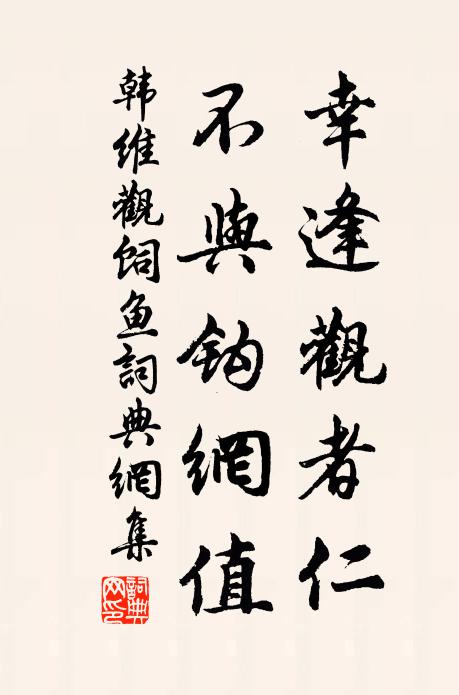 幸逢觀者仁
不與鈎網值
韩維觀飼鱼詞典網集
詞典
网印